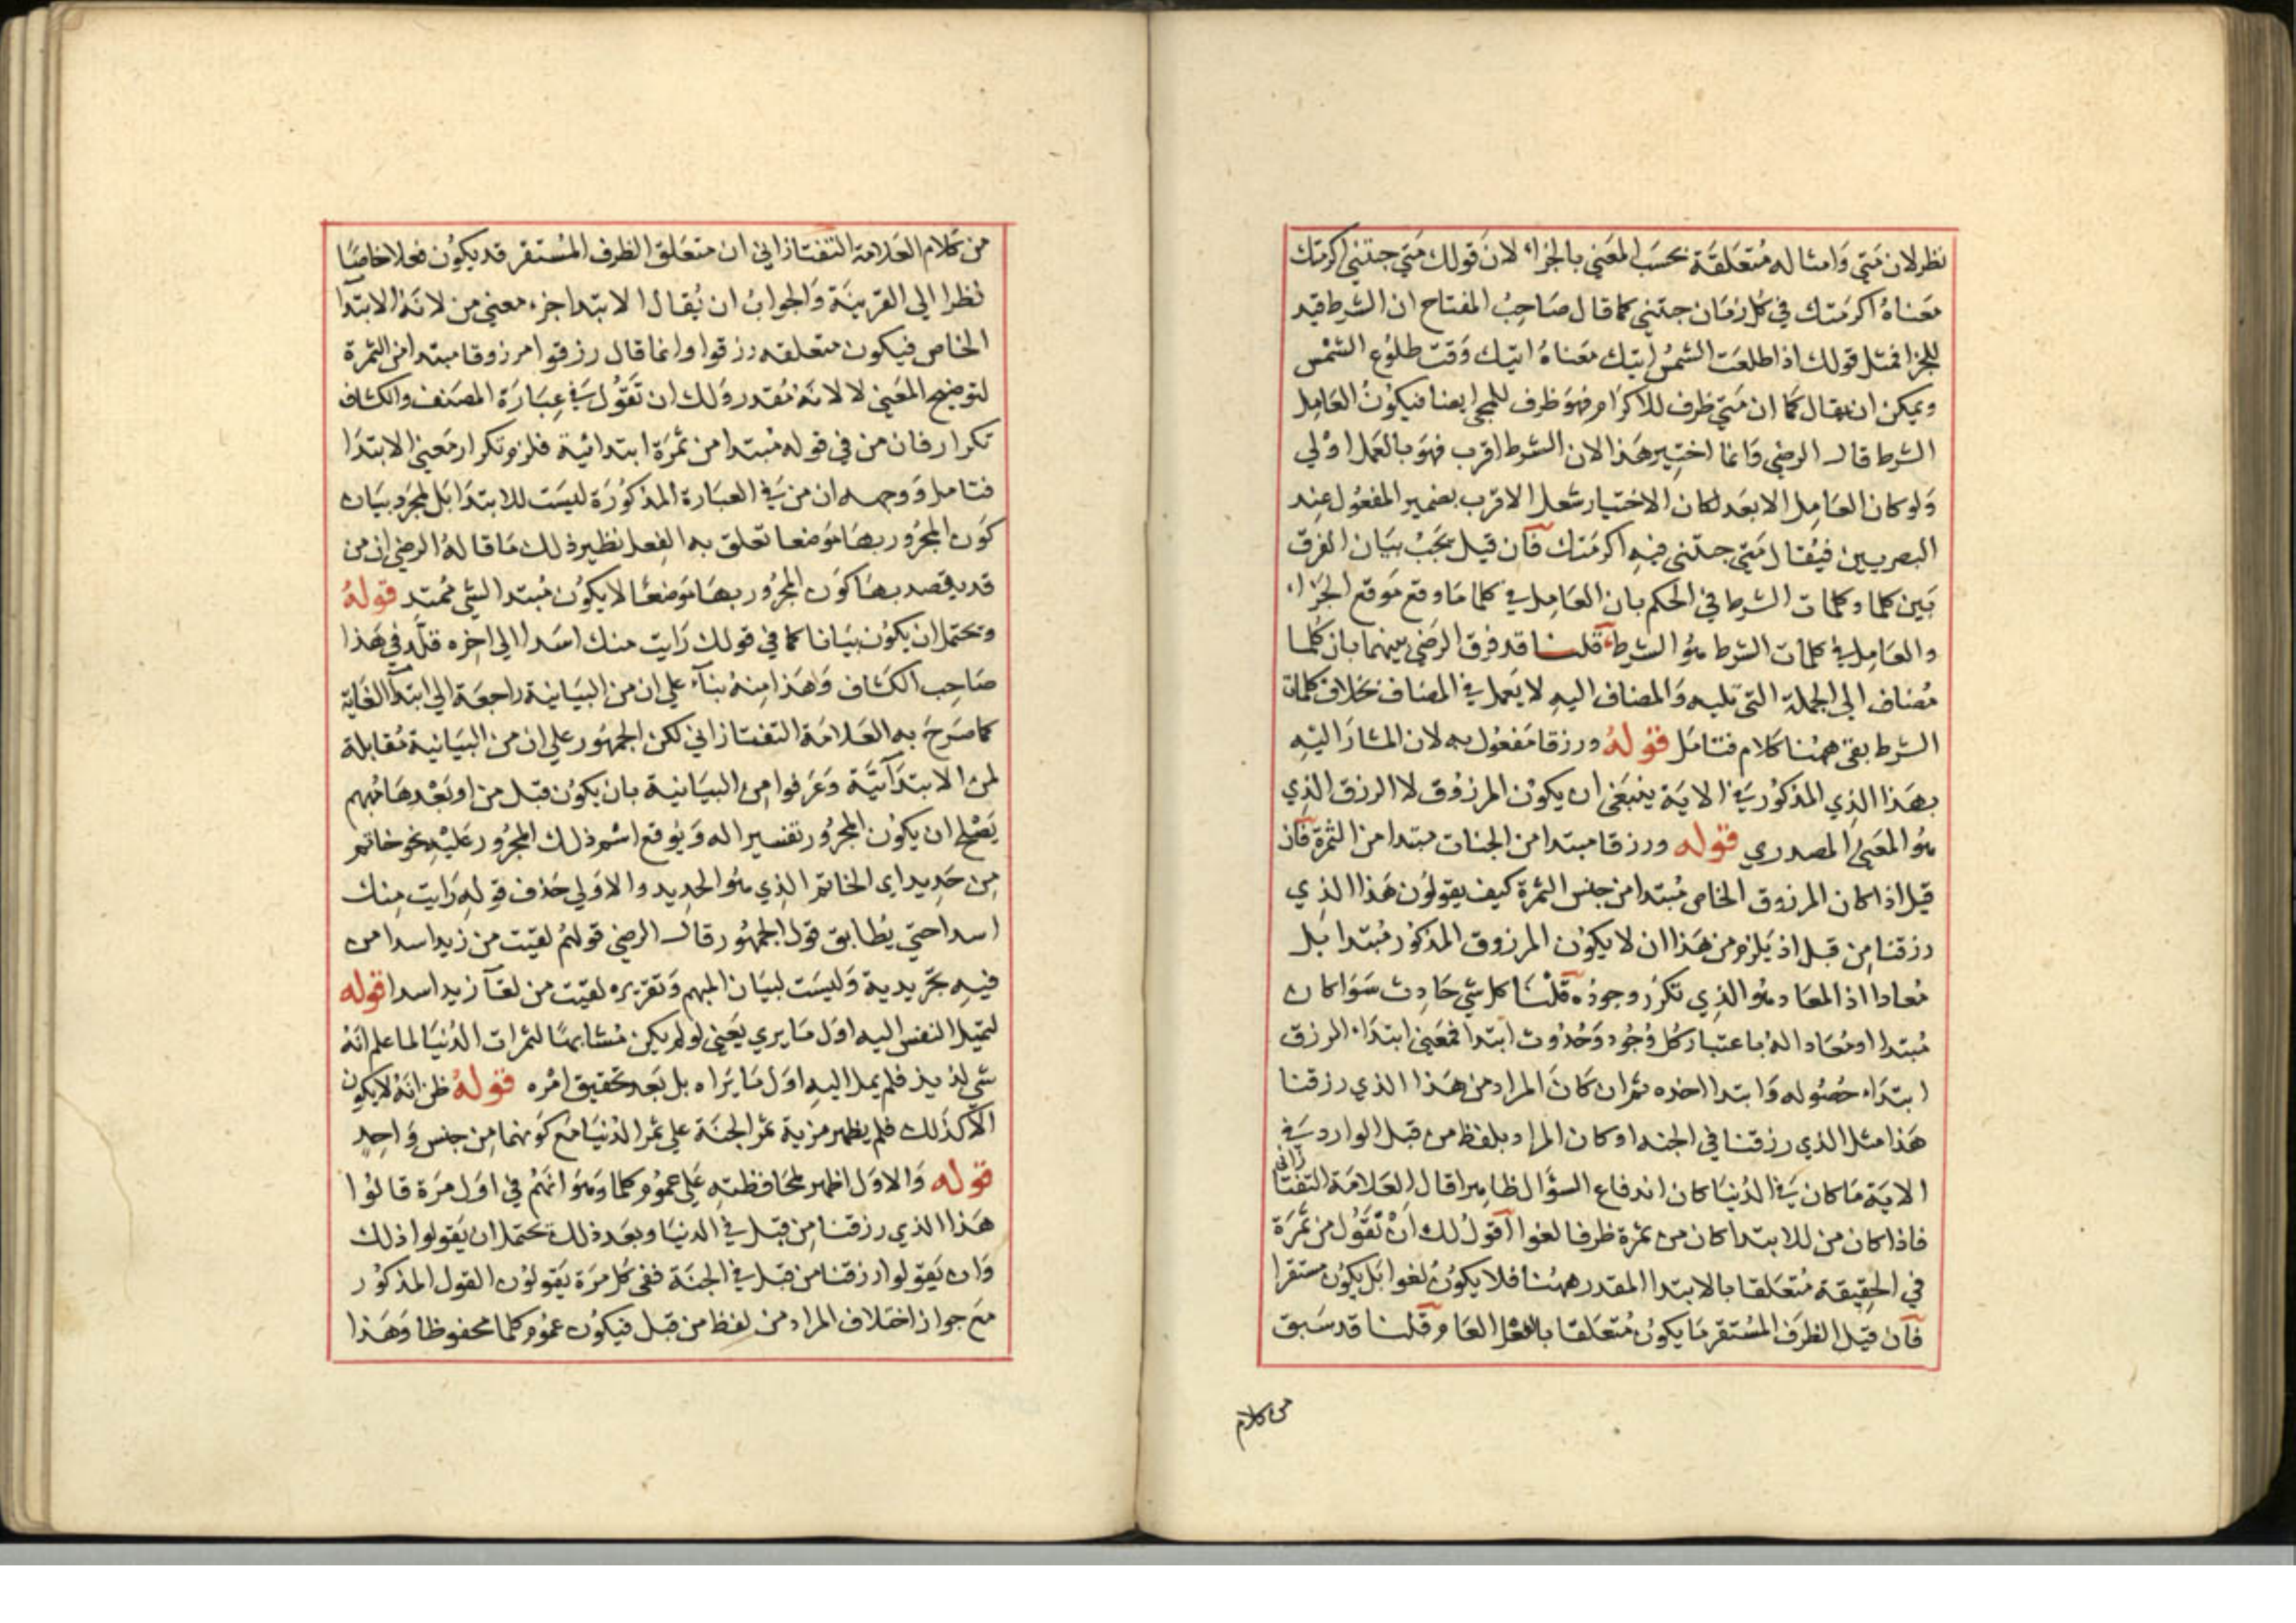 نظر لان متي وامثاله متعلقة بحسب المعني بالجزاء لان قولك متي جئتني اكرمتك
معناه اكرمتك في كل زمان جئتني كما قال صاحب المفتاح ان الشرط قيد
للجزا فمثل قولك اذا طلعت الشمس اتيك معناه اتيك وقت طلوع الشمس
ويمكن ان يقال كما ان متي ظرف للاكرام فهو ظرف للمجي ايضا فيكون العامل
الشرط قال الرضي وانما اختير هذا لان الشرط اقرب فهو بالعمل اولي
ولو كان العامل الابعد لكان الاختيار شغل الاقرب بضمير المفعول عند
البصريين فيقال متي جئتني فيه اكرمتك فان قيل يجب بيان الفرق
بين كلما وكلمات الشرط في الحكم بان العامل في كلما ما وقع موقع الجزاء
والعامل في كلمات الشرط هو الشرط قلنا قد فرق الرضي بينهما بان كلما
مضاف الي الجملة التي تليه والمضاف اليه لا يعمل في المضاف بخلاف كلمات
الشرط بقي ههنا كلام فتامل قوله ورزقا مفعول به لان المشار اليه
بهذا الذي المذكور في الاية ينبغي ان يكون المرزوق لا الرزق الذي
هو المعني المصدري قوله ورزقا مبتدا من الجنات مبتدا من الثمرة فان
قيل اذا كان المرزوق الخاص مبتدا من جنس الثمرة كيف يقولون هذا الذي
رزقنا من قبل اذ يلزم من هذا ان لا يكون المرزوق المذكور مبتدا بل
معادا اذ المعاد هو الذي تكرر وجوده قلنا كل شي حادث سوا كان
مبتدا او معادا له باعتبار كل وجود وحدوث ابتدا فمعني ابتداء الرزق
ابتداء حصوله وابتدا اخذه ثم ان كان المراد من هذا الذي رزقنا
هذا مثل الذي رزقنا في الجنه او كان المراد بلفظ من قبل الوارد في
الاية ما كان في الدنيا كان اندفاع السؤال ظاهرا قال العلامة التفتازاني
فاذا كان من للابتدا كان من ثمرة ظرفا لغوا اقول لك ان تقول من ثمرة
في الحقيقة متعلقا بالابتدا المقدر ههنا فلا يكون لغوا بل يكون مستقرا
فان قيل الظرف المستقر ما يكون متعلقا بالفعل العام قلنا قد سبق
من كلام
من كلام العلامة التفتازاني ان متعلق الظرف المستقر قد يكون فعلا خاصا
نظرا الي القرينة والجواب ان يقال الابتدا جزء معني من لانه الابتدا
الخاص فيكون متعلقه رزقوا وانما قال رزقوا مرزوقا مبتدا من الثمرة
لتوضيح المعني لا لانه مقدر ولك ان تقول في عبارة المصنف والكشاف
تكرار فان من في قوله مبتدا من ثمرة ابتدائية فلزم تكرار معني الابتدا
فتامل ووجهه ان من في العبارة المذكورة ليست للابتدا بل لمجرد بيان
كون المجرور بها موضعا تعلق به الفعل نظير ذلك ما قاله الرضي ان من
قد يقصد بها كون المجرور بها موضعا لا يكون مبتدا لشي ممتد قوله
وتحتمل ان يكون بيانا كما في قولك رايت منك اسدا الي اخره قلد في هذا
صاحب الكشاف وهذا منه بناء علي ان من البيانية راجعة الي ابتدآ الغاية
كما صرح به العلامة التفتازاني لكن الجمهور علي ان من البيانية مقابلة
لمن الابتدآئية وعرفوا من البيانية بان يكون قبل من او بعدها مبهم
يصلح ان يكون المجرور تفسيرا له ويوقع اسم ذلك المجرور عليه نحو خاتم
من حديد اي الخاتم الذي هو الحديد والاولي حذف قوله رايت منك
اسدا حتي يطابق قول الجمهور قال الرضي قولهم لقيت من زيد اسدا من
فيه تجريدية وليست لبيان المبهم وتقريره لقيت من لقآ زيد اسدا قوله
لتميل النفس اليه اول ما يري يعني لو لم يكن مشابها لثمرات الدنيا لما علم انه
شي لذيذ فلم يمل اليه اول ما يراه بل بعد تحقيق امره قوله ظن انه لا يكون
الا كذلك فلم يظهر مزية ثمر الجنة علي ثمر الدنيا مع كونهما من جنس واحد
قوله والاول اظهر لمحافظته علي عموم كلما وهو انهم في اول مرة قالوا
هذا الذي رزقنا من قبل في الدنيا وبعد ذلك تحتمل ان يقولوا ذلك
وان يقولوا رزقنا من قبل في الجنة ففي كل مرة يقولون القول المذكور
مع جواز اختلاف المراد من لفظ من قبل فيكون عموم كلما محفوظا وهذا